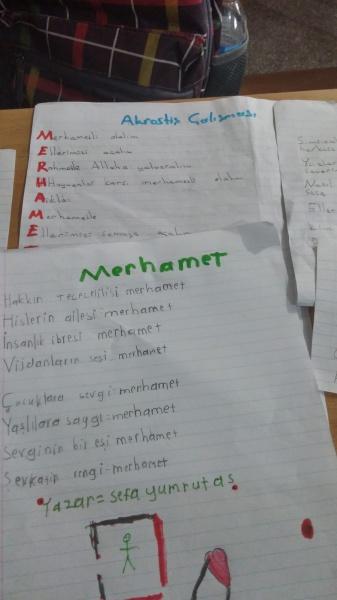 Akrostiş Çalışması
Merhametli olalım
Ellerimizi açalım
Rahmede Allaha yalvaralım
Hayvanlar karşı merhametli olalım
Merhametle
Ellerimizi semaya açalım
Merhamet
Hakkın tecellilisi merhamet
Hislerin ailesi=merhamet
İnsanlık ibresi merhamet
Vijdanların sesi merhamet
Çocuklara sevgi=merhamet
Yaşlılara saygı=merhamet
Sevginin bir eşi merhamet
Şevkatin rengi=merhamet
Yazar= sefa yumrutaş.